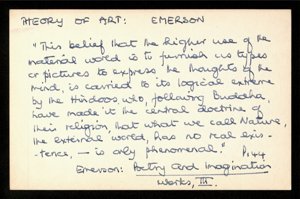 THEORY OF ART: EMERSON
"This belief that the higher use of the
material world is to furnish us types
or pictures to express the thoughts of the
mind, is carried to its logical extreme
by the Hindoos, who, following Buddha,
have made it the central doctrine of
their religion, that what we call Nature,
the external world, has no real exis-
tence, — is only phenomenal." P. 44
Emerson: Poetry and Imagination
Works, III.